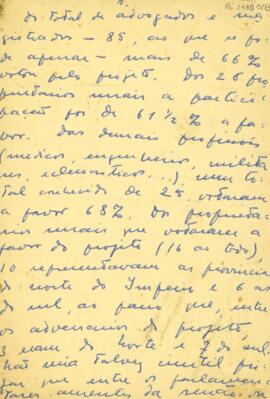 do total de advogados e ma
gistrados - 85, ao que se p
de apurar - mais de 66%
votou pelo projeto. Dos 26 pro
prietarios rurais a partici
pação foi de 61 1/2 % a fa
vor. Das demais profissões
(medicos, engenheiros, milita
res, eclesiasticos...) num to
tal conhecido de 25 votaram
a favor 68%. Dos proprieta
rios rurais que votaram a
favor do projeto (16 ao todo),
10 representavam as provincias
do norte do Imperio e 6 as
do sul, ao passo que, entre
os adversarios do projeto,
3 eram do Norte e 7 do sul.
Não será talvez inutil
que entre os parlamen
tares